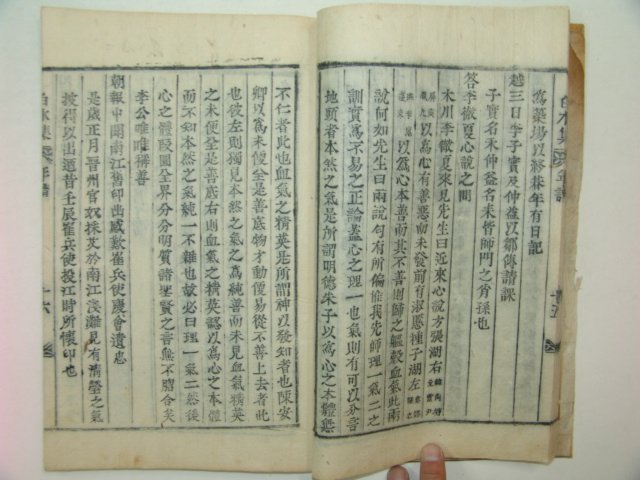 白水集 年譜
為築場以終葬年有日記
越三日李子實及仲益以鄒傳請課
子實名未仲益名未皆師門之肖孫也
答李徹夏心說之問
木川李徹夏來見先生曰近來心說方張湖右
以為心有善惡而未發前有淑慝種子湖左
以爲心本善而其不善則歸之軀殼血氣此兩
說何如先生曰兩說勻有所偏惟我先師理一氣二之
訓實爲不易之正論蓋心之理一也氣則有可以分言
地頭者本然之氣是所謂明德朱子以爲心之本體無
不仁者此也血氣之精英是所謂神以發知者也陳安
卿以爲未便全是善底物才動便易從不善上去者此
也彼左則獨見本然之氣之爲純善而未見血氣精英
之未便全是善底右則血氣之精英認以爲心之本體
而未見本然之氣純一不雜也故必曰理一氣二然後
心之體段圓全界分分明質諸聖賢之書無不脗合矣
李公唯唯稱善
朝報中聞南江舊印出感歎崔兵使慶會遺忠
是歲正月晉州官奴採艾於南江淺灘見有淸瑩之氣
披得以出迺昔壬辰崔兵使投江時所懷印也
白水集 年譜 十六